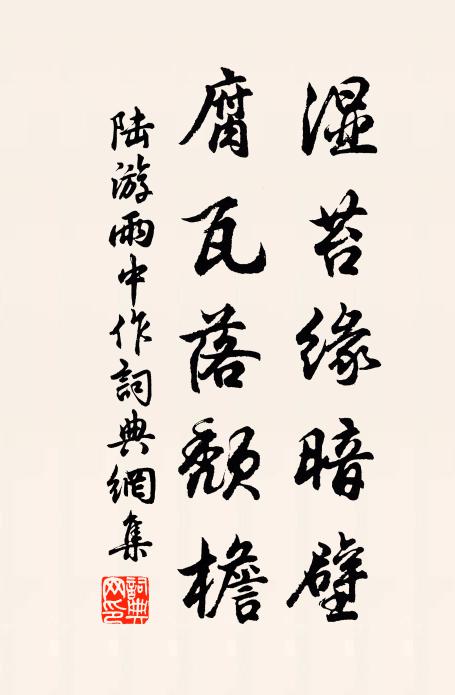 湿苔缘暗壁
腐瓦落颓檐
陆游雨中作詞典網集
詞典网印